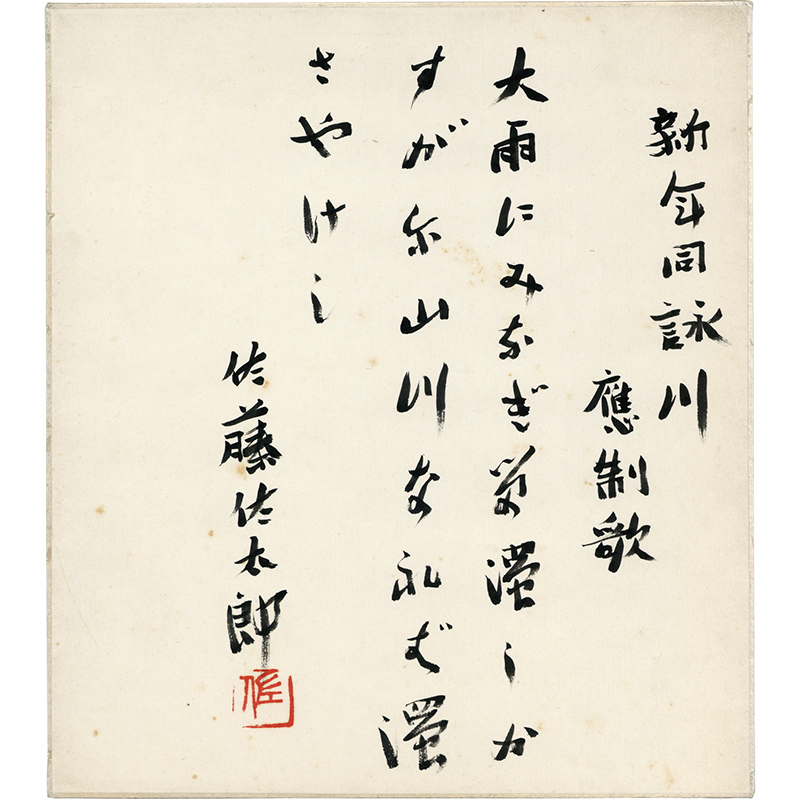 新年同詠川
應制歌
大雨にみなぎる濁しか
すが尓山川な礼ば濁
さやけし
佐藤佐太郎